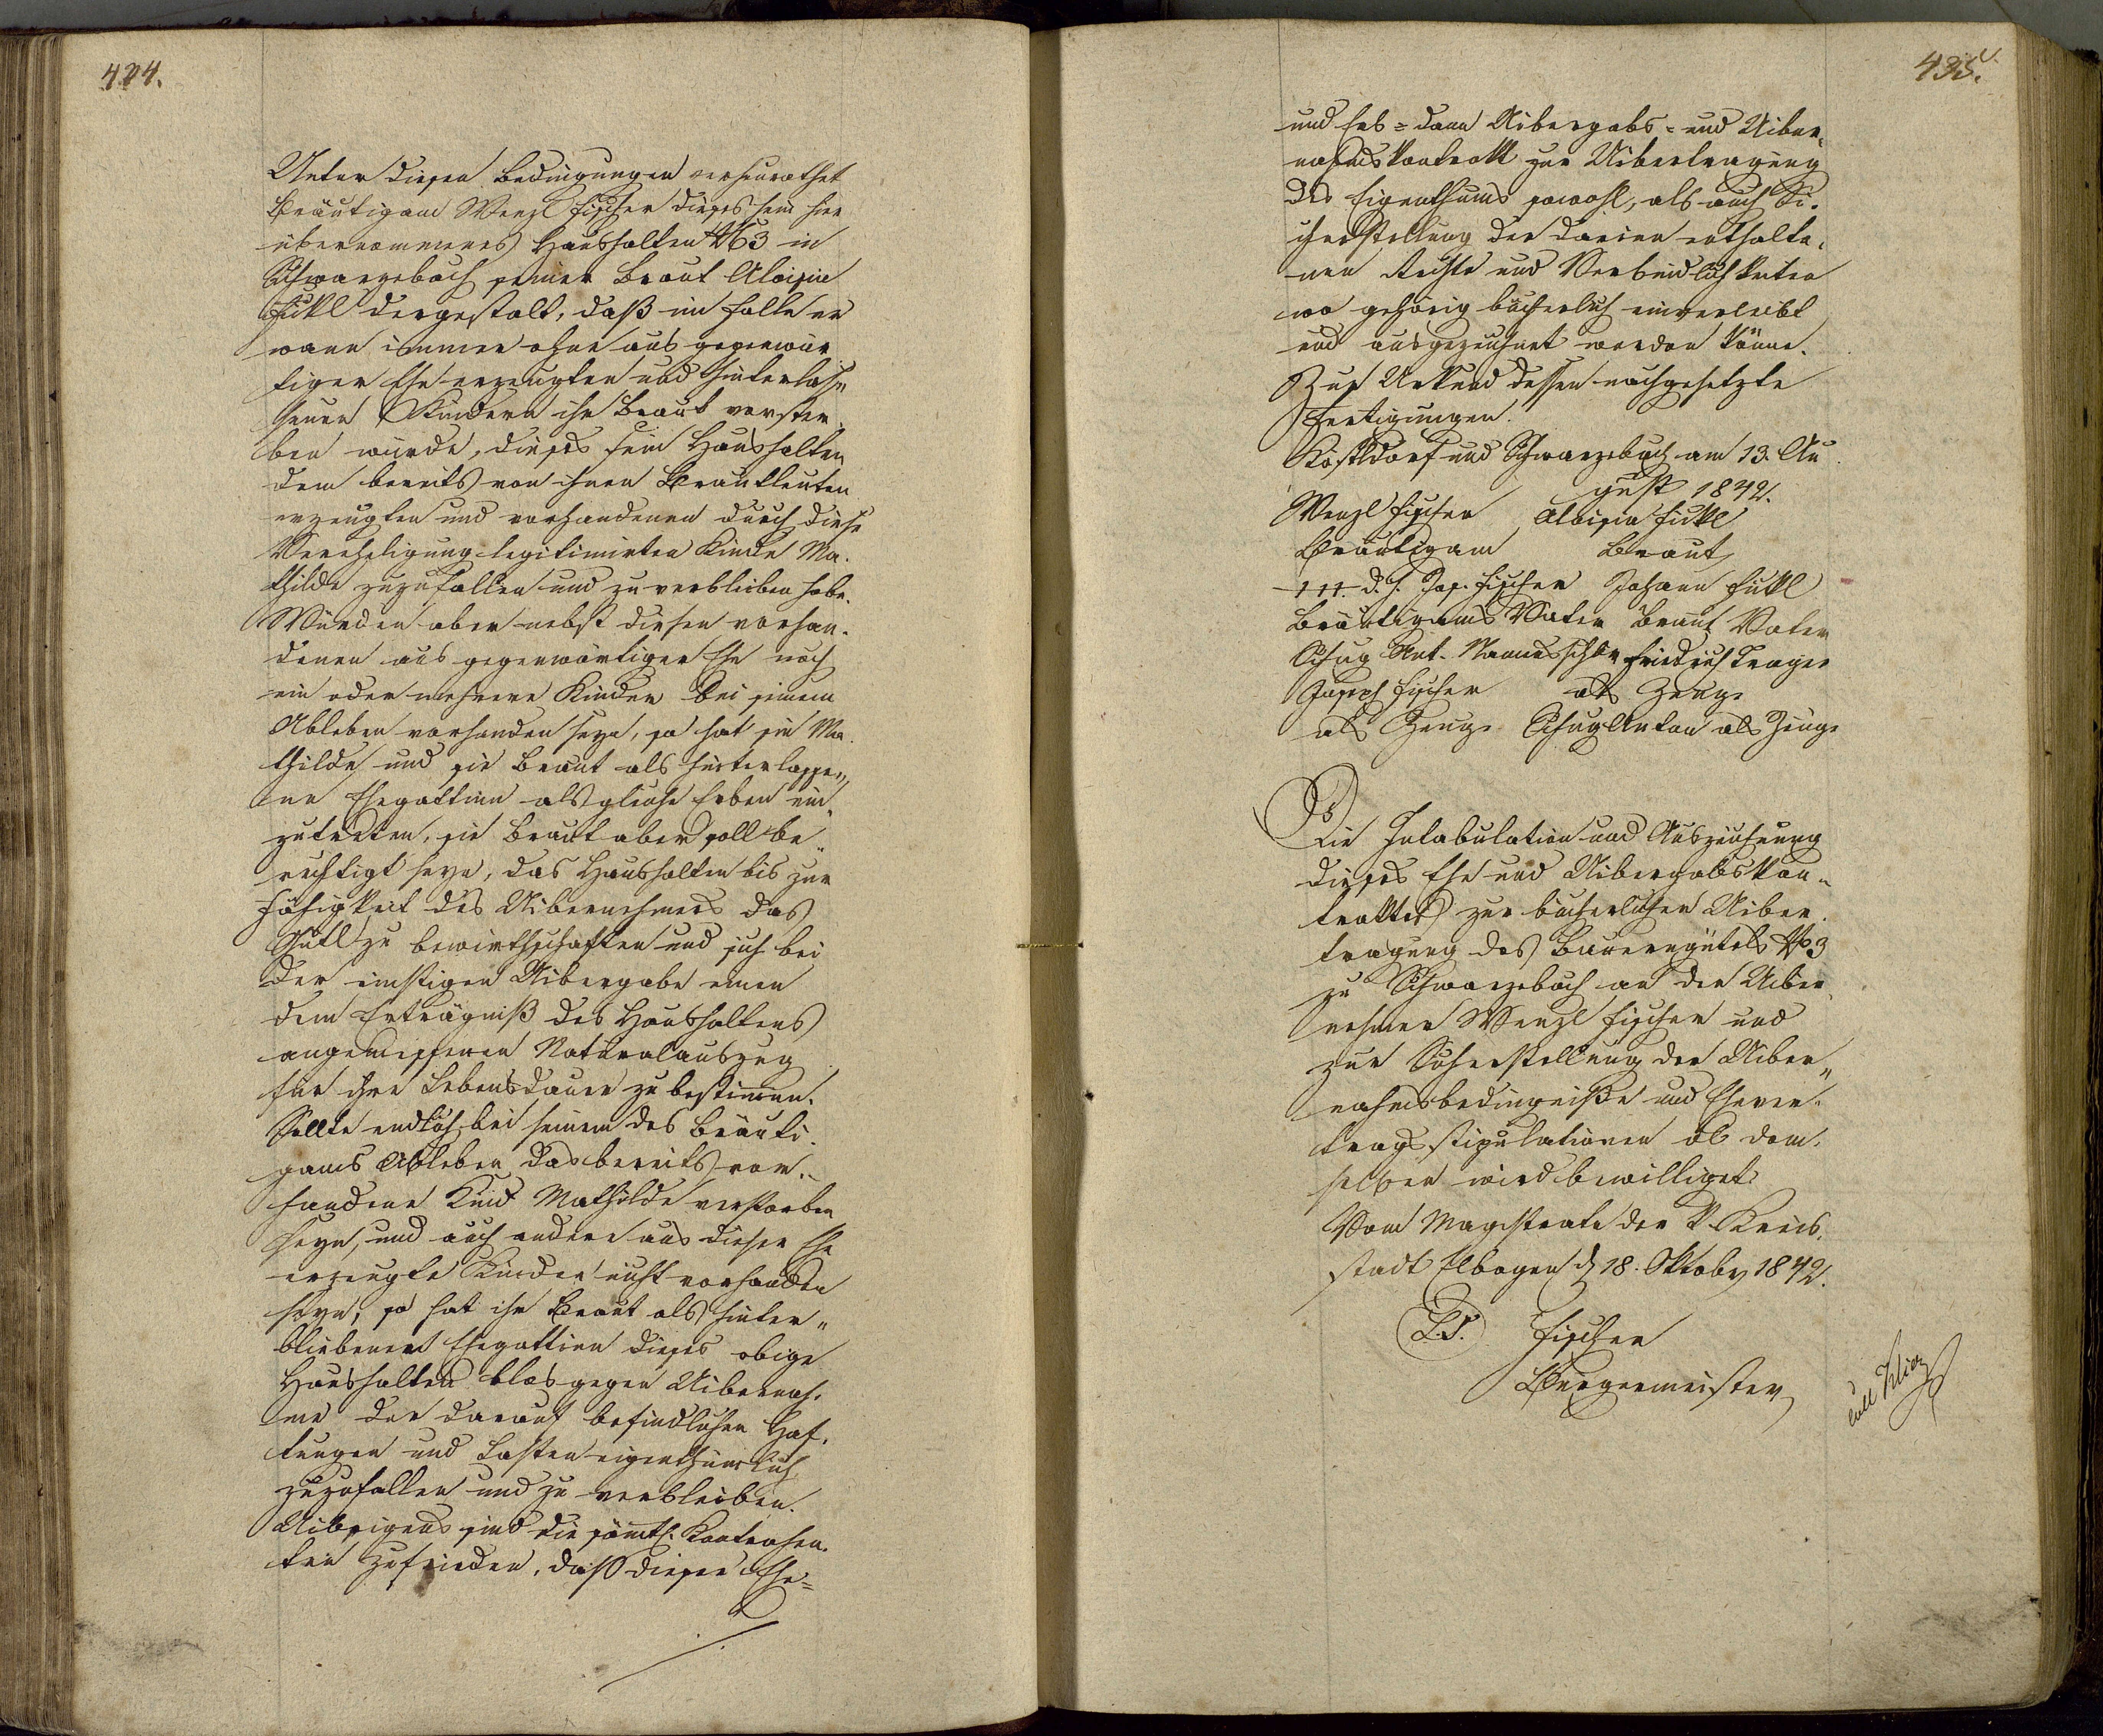 424.
Unter diesen Bedingungen verheurathet
Bräutigam Wenzl Fischer dieses sein hier
übernommenes Haushalten N 3 in
Schwarzebach seiner Braut Aloisia
Fükl dergestalt, daß im Falle er
wann immer ohne aus gegenwär
tiger Ehe erzeugten und hinterlas„
senen Kindern ihr Braut verster
ben würde, dieses sein Haushalten
dem bereits von ihnen Brautleuten
erzeugten und vorhandenen durch diese
Verehligung legitimirten Kinde Ma.
thilde zuzufallen und zu verbleiben habe.
Würden aber nebst diesen vorhan.
denen aus gegenwärtiger Ehe noch
ein oder mehrere Kinder bei seinem
Ableben vorhanden seyn, so hat sie Ma
thilde und sie Braut als hinterlasse„
ne Ehegattinn als gleiche Erben ein
zutreten, sie Braut aber soll be„
rechtigt seyn, das Haushalten bis zur
Fähigkeit des Uibernehmers das
Gütl zu bewirthschaften und sich bei
der einstigen Uibergabe einen
dem Erträgniß des Haushaltens
angemessenen Naturalauszug
für ihre Lebensdauer zu bestimmen.
Sollte endlich bei seinem des Bräuti.
gams Ableben das bereits vor„
handene Kind Mathilde verstorben
seyn, und auch andere aus dieser Ehe
erzeugte Kinder nicht vorhanden
seyn, so hat ihr Braut als hinter„
bliebenen Ehegattinn dieses obige
Haushalten blos gegen Uibernah.
me der darauf befindlichen Haf.
tungen und Lasten eigenthümlich
zuzufallen und zu verbleiben.
Uibrigens sind die sämtl. Kontrahen.
ten zufrieden, daß dieser Ehe=
435.
und Erb= dann Uibergabs= und Uiber„
nahmskontrakt zur Uibertragung
des Eigenthums sowohl, als auch Si.
cherstellung der darinn enthalte.
nen Rechte und Verbindlichkeiten
wo gehörig bücherlich einverleibt
und ausgezeichnet werden könne.
Zur Urkund dessen nachgesetzte
Fertigungen.
Köstldorf und Schwarzebach am 13. Au
gust 1842.
Wenzl Fischer Aloisia Fükl
Bräutigam Braut
+++ d. i. Jos. Fischer Johann Fükl
Bräutigams Vater Braut Vater
Schug Ant. Friedrich Trager
Joseph Fischer als Zeuge
als Zeuge Schug Anton als Zeuge
Die Intabulation und Auszeichnung
dieses Ehe und Uibergabskon„
traktes zur bücherlichen Uiber.
tragung des Bauerngütels N 3
zu Schwarzebach an den Uiber
nehmer Wenzl Fischer und
zur Sicherstellung der Uiber„
nahmsbedingniße und Ehever.
tragsstipulationen ob dem.
selben wird bewilliget.
Vom Magistrate der k. Kreis.
stadt Elbogen d 18. Oktober 1842.
L.S. Fischer
Bürgermeister